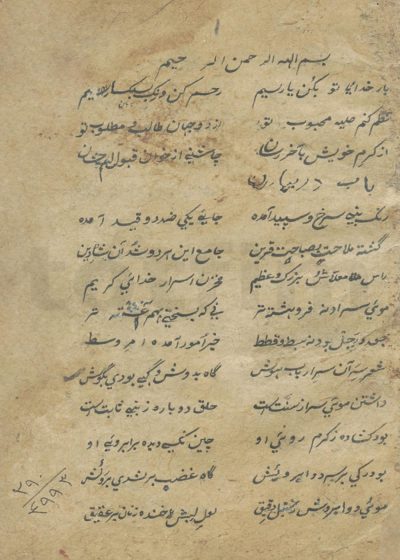 ۱
بسم الله الرحمن الرحیم
بار خدایا تو بکن یاریم رحم کن و
نظم کنم حلیه محبوب تو از دو جهان طالب و مطلوب تو
از کرم خویش بآخر رسان چاشنی از خوان قبولم چشان
باب
رنگ نبی سرخ و سپید آمده جایی یکی ضد دو قید آمده
گشته ملاحت بصباحت قرین جامع این هر دو شد آن شاه دین
راس معلاش بزرگ و عظیم مخزن اسرار خدای کریم
موی سر او نه فروهشته تر نی که بسختی بهم آغشته تر
جعد و رجل بود نه سبط و قطط خیر امور آمده امر وسط
شعر سر آن سرور با هوش گاه بدوش و گهی بودی بگوش
داشتن موی سر از سنت است حلق دو باره ز نبی ثابت است
بود گشاده ز کرم روی او چین نگهی دیده بر ابروی او
بود رگی بر سر دو ابرویش گاه غضب بر شدی بر رویش
موی دو ابروش دقیق لعل لبش خنده زنان بر عقیق
۲۹۰
۴۹۹۳